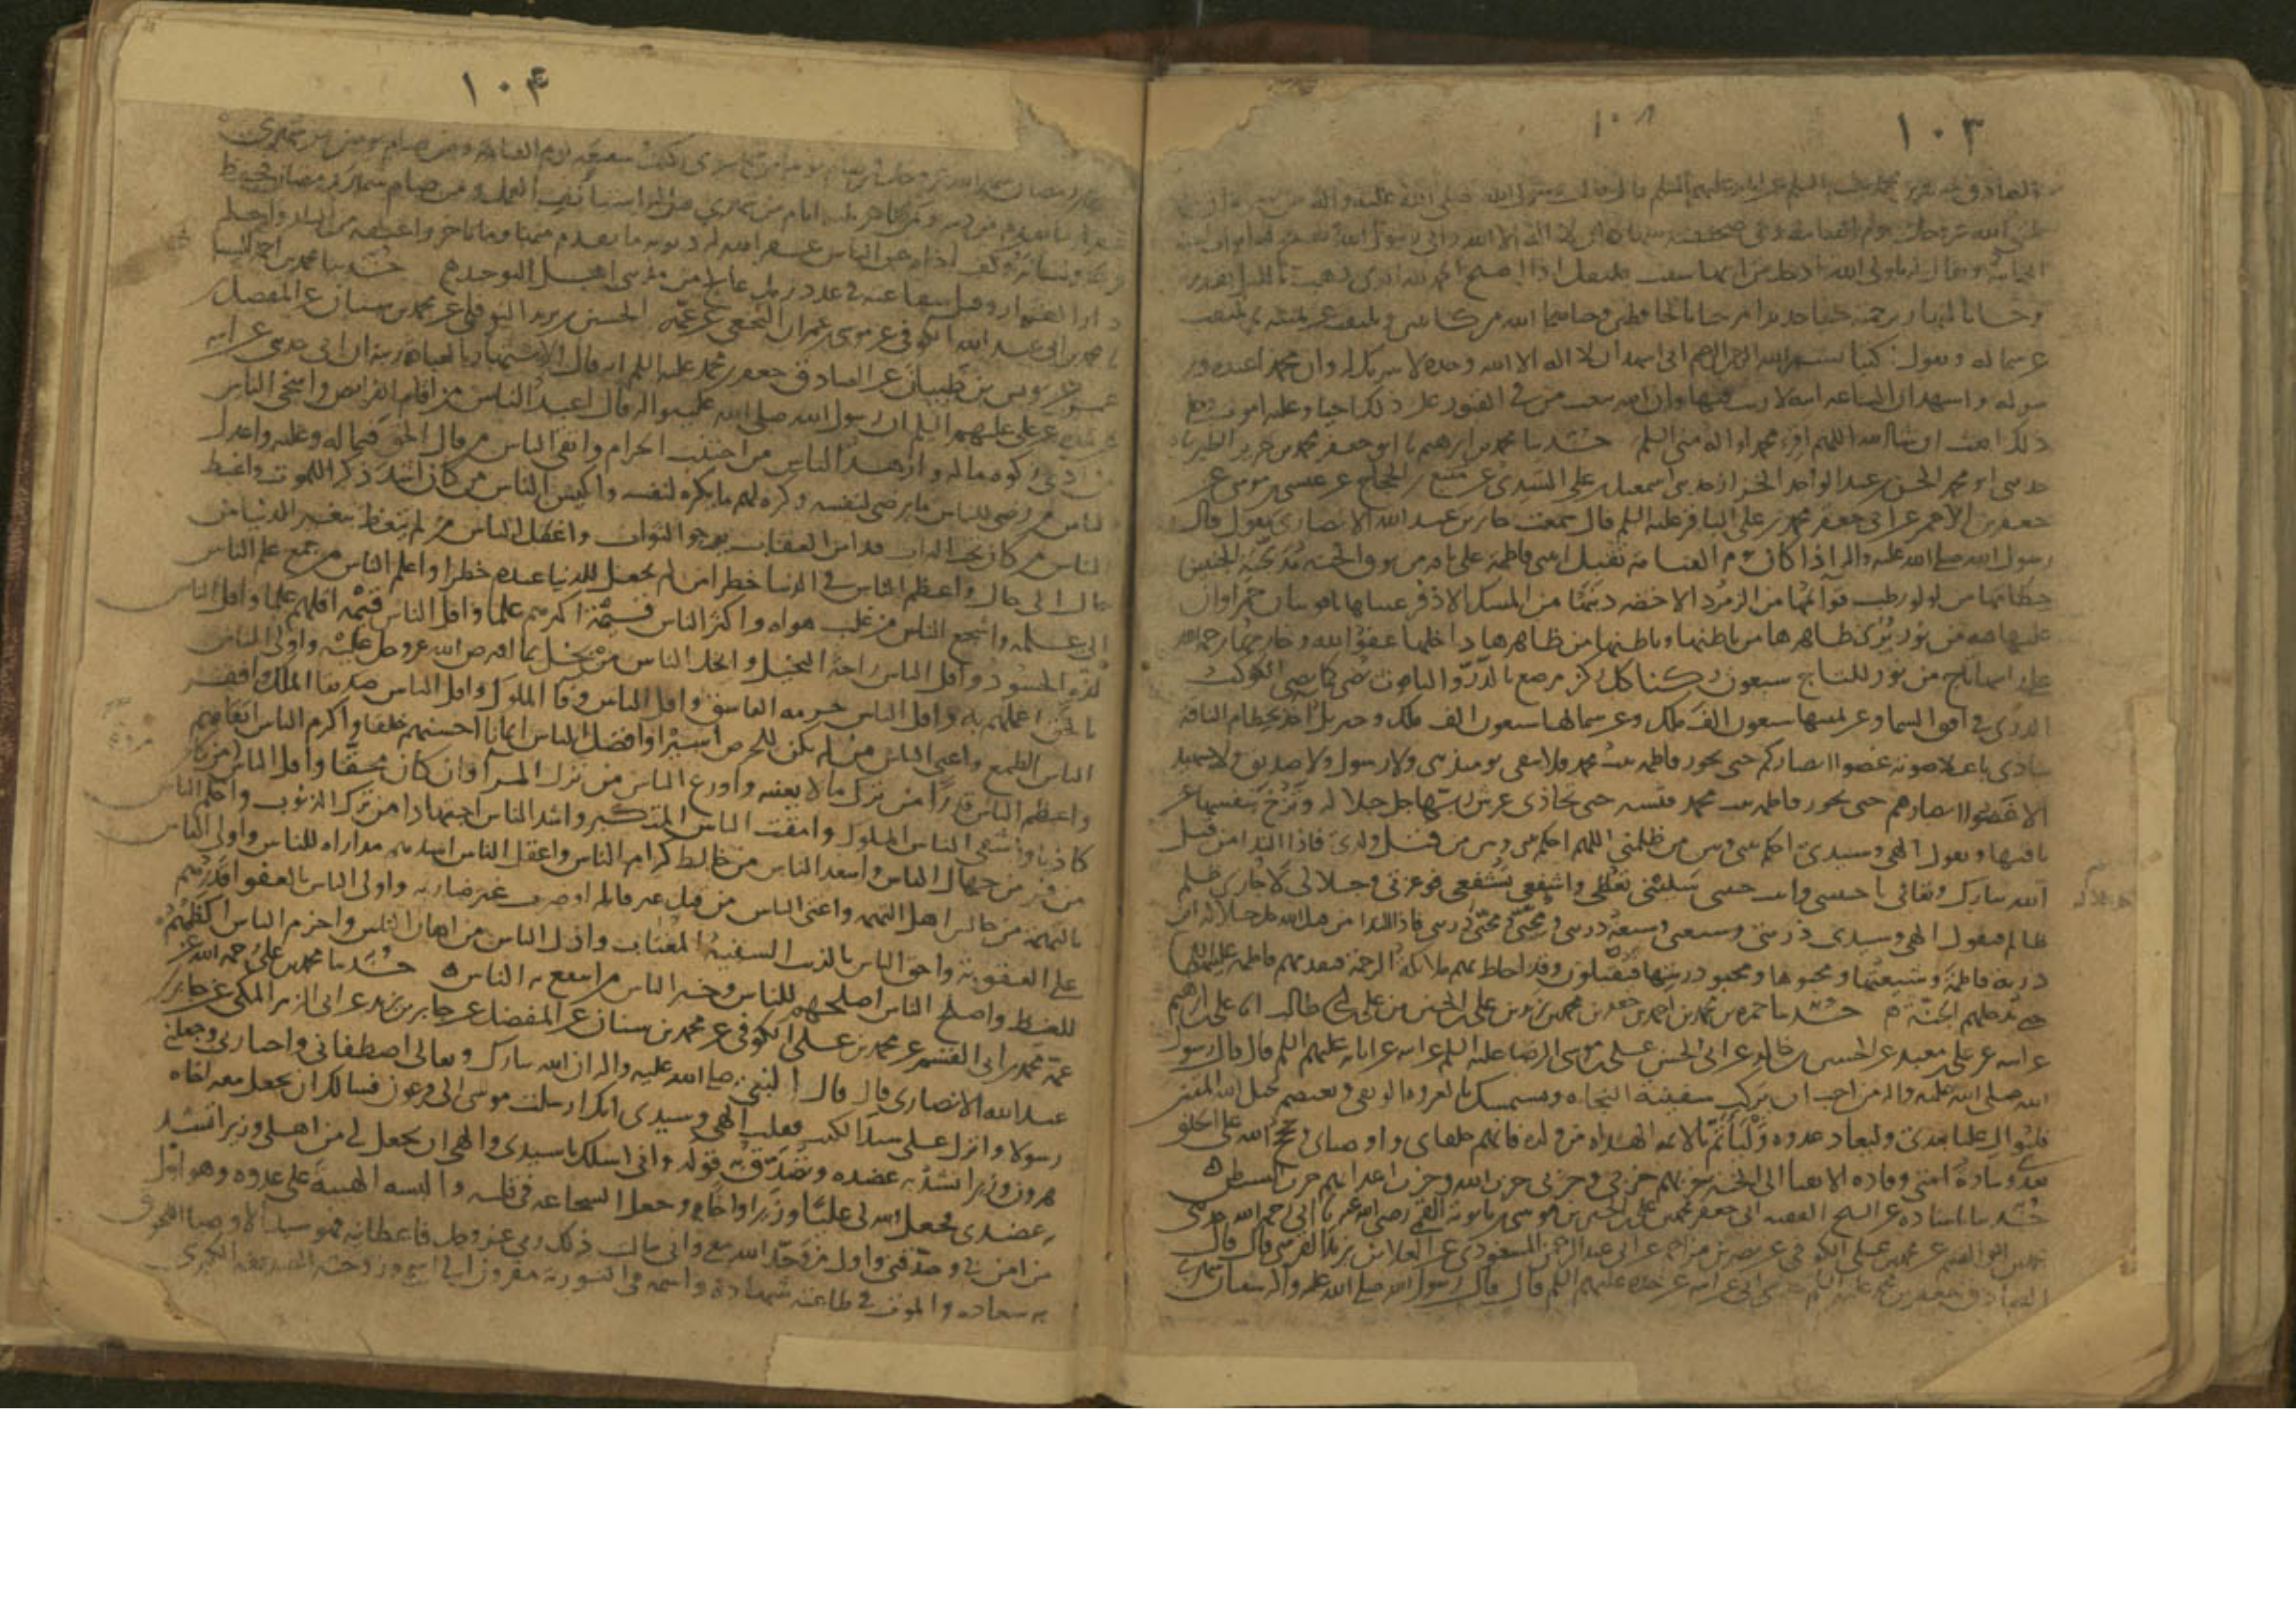 ١٠٣
١٠٨
الصادق جعفر بن محمد عليه السلم عن ابايه عليهم السلم قال قال رسول الله صلى الله عليه واله من
الله عز وجل يوم القيامة وفي صحيفته شهادة ان لا اله الا الله واني رسول الله
وقال اذا اصبح الحمد لله الذي ذهب بالليل بقدرته
وجانا بالنهار برحمته خلقا جديدا مرحبا بالحافظين وحياكما الله من كاتبين ويلتفت عن يمينه ثم يلتفت
عن شماله ويقول اكتبا بسم الله الرحمن الرحيم اني اشهد ان لا اله الا الله وحده لا شريك له وان محمدا عبده ور
سوله واشهد ان الساعه اتيه لا ريب فيها وان الله يبعث من في القبور على ذلك احيا وعليه اموت وعلى
ذلك ابعث ان شا الله اللهم اقرء محمدا واله مني السلم حدثنا محمد بن ابرهيم نا ابو جعفر محمد بن جرير الطبري نا
حدثني ابو محمد الحسن بن عبد الواحد الخزاز حدثني اسمعيل بن علي السندي عن منيع بن الحجاج عن عيسى بن موسى عن
جعفر بن الاحمر عن ابي جعفر محمد بن علي الباقر عليه السلم قال سمعت جابر بن عبد الله الانصاري يقول قال
رسول الله صلى الله عليه واله اذا كان يوم القيامة تقبل ابنتي فاطمة على ناقه من نوق الجنه مدبجة الجنبين
خطامها من لولو رطب قوائمها من الزمرد الاخضر ذنبها من المسك الاذفر عيناها ياقوتتان حمراوان
عليها قبه من نور يرى ظاهرها من باطنها وباطنها من ظاهرها داخلها عفو الله وخارجها رحمه الله
على راسها تاج من نور للتاج سبعون ركنا كل ركن مرصع بالدر والياقوت يضي كما يضي الكوكب
الدري في افق السما وعن يمينها سبعون الف ملك وعن شمالها سبعون الف ملك وجبريل اخذ بخطام الناقه
ينادي باعلا صوته غضوا ابصاركم حتى تجوز فاطمه بنت محمد فلا يبقى يومئذ نبي ولا رسول ولا صديق ولا شهيد
الا غضوا ابصارهم حتى تجوز فاطمه بنت محمد فتسير حتى تحاذي عرش ربها جل جلاله وتزخ بنفسها عن
ناقتها وتقول الهي وسيدي احكم بيني وبين من ظلمني اللهم احكم بيني وبين من قتل ولدي فاذا الندا من قبل
الله تبارك وتعالى يا حبيبتي وابنت حبيبي سليني تعطي واشفعي تشفعي فوعزتي وجلالي لا جازني ظلم
ظالم فتقول الهي وسيدي ذريتي وشيعتي وشيعة ذريتي ومحبي ومحبي ذريتي فاذا الندا من قبل الله جل جلاله اين
ذرية فاطمة وشيعتها ومحبوها ومحبو ذريتها فيقبلون وقد احاط بهم ملائكة الرحمة فتقدمهم فاطمه عليها السلم
حتى تدخلهم الجنة حدثنا حمزه بن محمد بن احمد بن جعفر بن محمد بن زيد بن علي بن الحسين بن علي بن ابي طالب انا علي بن ابرهيم
عن ابيه عن علي بن معبد عن الحسين بن خالد عن ابي الحسن علي بن موسى الرضا عليه السلم عن ابيه عن ابايه عليهم السلم قال قال رسول
الله صلى الله عليه واله من احب ان يركب سفينة النجاه ويستمسك بالعروه الوثقى ويعتصم بحبل الله المتين
فليوال عليا بعدي وليعاد عدوه وليأتم بالائمه الهداه من ولده فانهم خلفاي واوصياي وحجج الله على الخلق
بعدي وسادة امتي وقاده الاتقيا الى الجنه حزبهم حزبي وحزبي حزب الله وحزب اعدائهم حزب الشيطن
حدثنا الشيخ الفقيه ابي جعفر محمد بن علي بن الحسين بن موسى بن بابويه القمي رضي الله عنه نا ابي رحمه الله حدثني
محمد بن ابو القسم عن محمد بن علي الكوفي عن نصر بن مزاحم عن ابي عبد الرحمن المسعودي عن العلا بن يزيد القرشي قال قال
الصادق جعفر بن محمد عليه السلم حدثني ابي عن ابيه عن جده عليهم السلم قال قال رسول الله صلى الله عليه واله شعبان شهري
١٠٤
رمضان شهر الله عز وجل فمن صام يوما من شهري كنت شفيعه يوم القيامه ومن صام يومين من شهري
غفر له ما تقدم من ذنبه ومن صام ثلثه ايام من شهري قيل له استانف العمل ومن صام شهر رمضان فحفظ
فرجه ولسانه وكف اذاه عن الناس غفر الله له ذنوبه ما تقدم منها وما تاخر واعتقه من النار واحله
دار القرار وقبل شفاعته في عدد رمل عالج من مذنبي اهل التوحيد حدثنا محمد بن احمد السنا
نا محمد بن ابي عبد الله الكوفي عن موسى بن عمران النخعي عن عمه الحسين بن يزيد النوفلي عن محمد بن سنان عن المفضل
بن عمر عن يونس بن ظبيان عن الصادق جعفر بن محمد عليه السلم انه قال الاشتهار بالعباده ريبة ان ابي حدثني عن ابيه
عن جده عن علي عليهم السلم ان رسول الله صلى الله عليه واله قال اعبد الناس من اقام الفرايض واسخى الناس
من ادى زكوه ماله وازهد الناس من اجتنب الحرام واتقى الناس من قال الحق فيما له وعليه واعدل
الناس من رضي للناس ما يرضى لنفسه وكره لهم ما يكره لنفسه واكيس الناس من كان اشد ذكرا للموت واغبط
الناس من كان تحت التراب قد امن العقاب يرجو الثواب واغفل الناس من لم يتعظ بتغير الدنيا من
حال الى حال واعظم الناس في الدنيا خطرا من لم يجعل للدنيا عنده خطرا واعلم الناس من جمع علم الناس
الى علمه واشجع الناس من غلب هواه واكثر الناس قيمة اكثرهم علما واقل الناس قيمة اقلهم علما واقل الناس
لذة الحسود واقل الناس راحة البخيل وابخل الناس من بخل بما افترض الله عز وجل عليه واولى الناس
بالحق اعلمهم به واقل الناس حرمه الفاسق واقل الناس وفا الملوك واقل الناس صديقا الملك وافقر
الناس الطمع واغنى الناس من لم يكن للحرص اسيرا وافضل الناس ايمانا احسنهم خلقا واكرم الناس اتقاهم
واعظم الناس قدرا من ترك ما لا يعنيه واورع الناس من ترك المرا وان كان محقا واقل الناس مروة من كان
كاذبا واشقى الناس الملوك وامقت الناس المتكبر واشد الناس اجتهادا من ترك الذنوب واحلم الناس
من فر من جهال الناس واسعد الناس من خالط كرام الناس واعقل الناس اشدهم مداراه للناس واولى الناس
بالتهمه من جالس اهل التهمه واعتى الناس من قتل غير قاتله او ضرب غير ضاربه واولى الناس بالعفو اقدرهم
على العقوبة واحق الناس بالذنب السفيه المغتاب واذل الناس من اهان الناس واحزم الناس اكظمهم
للغيظ واصلح الناس اصلحهم للناس وخير الناس من انتفع به الناس حدثنا محمد بن علي رحمه الله عن
عمه محمد بن ابي القسم عن محمد بن علي الكوفي عن محمد بن سنان عن المفضل عن جابر بن يزيد عن ابي الزبير المكي عن جابر بن
عبد الله الانصاري قال قال النبي صلى الله عليه واله ان الله تبارك وتعالى اصطفاني واختارني وجعلني
رسولا وانزل علي سيد الكتب فقلت الهي وسيدي انك ارسلت موسى الى فرعون فسالك ان يجعل معه اخاه
هرون وزيرا تشد به عضده وتصدق به قوله واني اسئلك يا سيدي والهي ان تجعل لي من اهلي وزيرا تشد
به عضدي فجعل الله لي عليا وزيرا واخا وجعل الشجاعه في قلبه والبسه الهيبة على عدوه وهو اول
من امن بي وصدقني واول من وحد الله معي واني سالت ذلك ربي عز وجل فاعطانيه فهو سيد الاوصيا اللحوق
به سعاده والموت في طاعته شهادة واسمه في التورية مقرون الى اسمي وزوجته الصديقه الكبرى